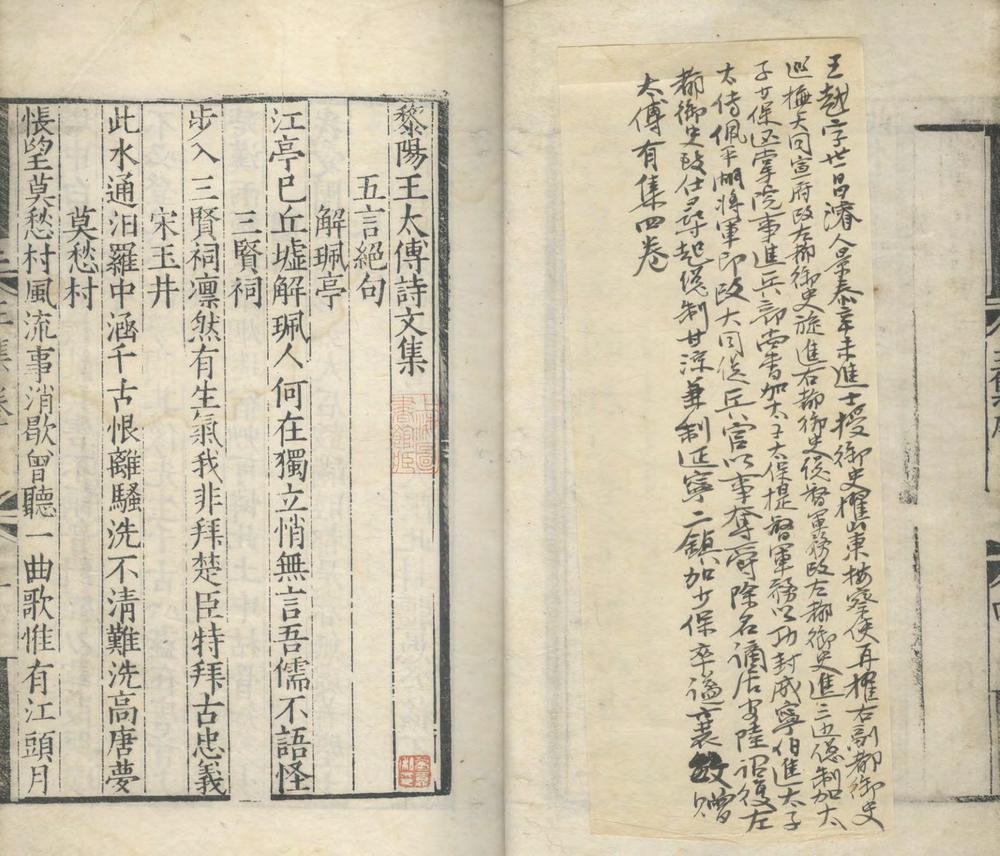 王越字世昌濬人景泰辛未進士授御史擢山東按察使再擢右副都御史
巡撫大同宣府改左都御史旋進右都御史總督軍務改左都御史進三边總制加太
子少保仍掌院事進兵部尚書加太子太保提督軍務以功封威寧伯進太子
太傅佩平胡將軍印改大同從兵官以事奪爵除名謫居安陸詔復左
都御史致仕尋起總制甘涼兼制延寧二鎮加少保卒謚襄敏贈
太傅有集四卷
黎陽王太傅詩文集
上海圖書館藏
五言絕句
解珮亭
江亭已丘墟解珮人何在獨立悄無言吾儒不語怪
三賢祠
步入三賢祠凛然有生氣我非拜楚臣特拜古忠義
宋玉井
此水通汨羅中涵千古恨離騷洗不清難洗高唐夢
莫愁村
悵望莫愁村風流事消歇曾聽一曲歌惟有江頭月